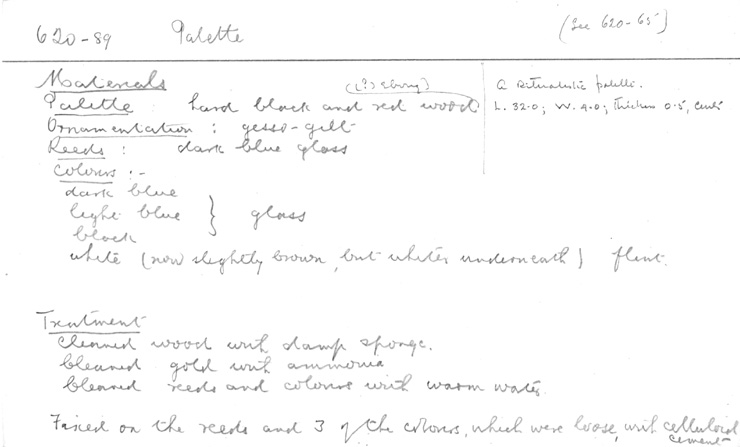 620-89 Palette (See 620-65)
Materials
Palette : hard black and red wood (L? ebony)
Ornamentation : gesso-gilt
Reeds : dark blue glass
Colours :-
dark blue
light blue } glass
black
white (now slightly brown, but whiter underneath) flint.
A Ritualistic palette.
L. 32.0; W. 4.0; Thickness 0.5, cents
Treatment
Cleaned wood with damp sponge.
Cleaned gold with ammonia
Cleaned reeds and colours with warm water.
Fixed on the reeds and 3 of the colours, which were loose, with celluloid
cement